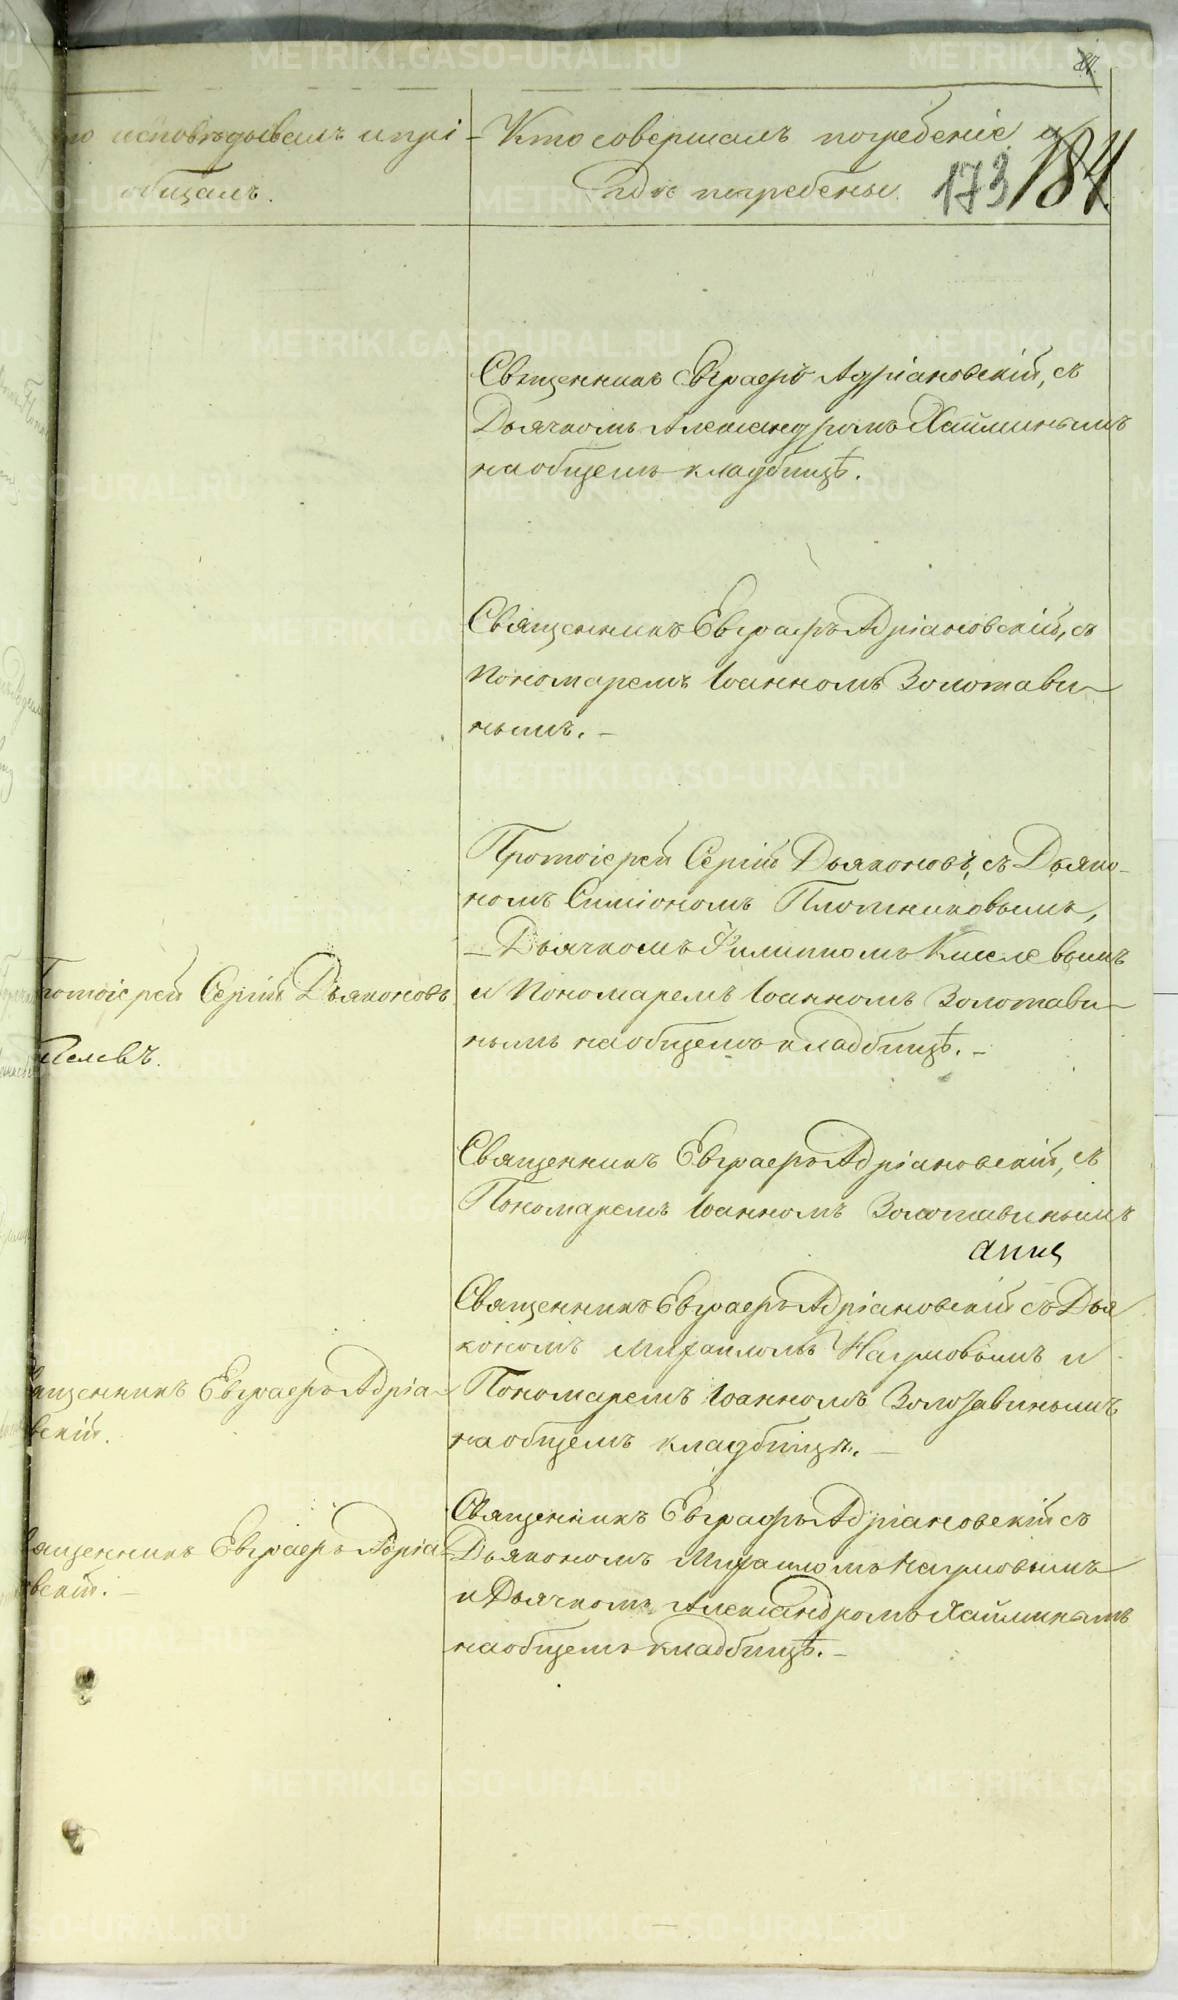 исповѣдывалъ и прі-
общалъ.
Кто совершалъ погребеніе и
гдѣ погребены.
173 184.
Священникъ Евграфъ Адріановскій, съ
Дьячкомъ Александромъ Хайминымъ
на общемъ кладбищѣ.
Священникъ Евграфъ Адріановскій, съ
Пономаремъ Іоанномъ Золотави-
нымъ. –
Протоіерей Сергій Дьяконовъ, съ Дьяко-
номъ Симіономъ Плотниковымъ,
Дьячкомъ Филиппомъ Киселевымъ
и Пономаремъ Іоанномъ Золотави-
нымъ на общемъ кладбищѣ. –
ротоіерей Сергій Дьяконовъ
Священникъ Евграфъ Адріановскій, съ
Пономаремъ Іоанномъ Золотавинымъ
Священникъ Евграфъ Адріановскій съ Дья
кономъ Михаиломъ Наумовымъ и
Пономаремъ Іоанномъ Золотавинымъ
на общемъ кладбищѣ. –
ященникъ Евграфъ Адріа-
вскій.
Священникъ Евграфъ Адріановскій съ
Дьякономъ Михаиломъ Наумовымъ
и Дьячкомъ Александромъ Хайминымъ
на общемъ кладбищѣ. –
ященникъ Евграфъ Адріа-
вскій. –
METRIKI.GASO-URAL.RU